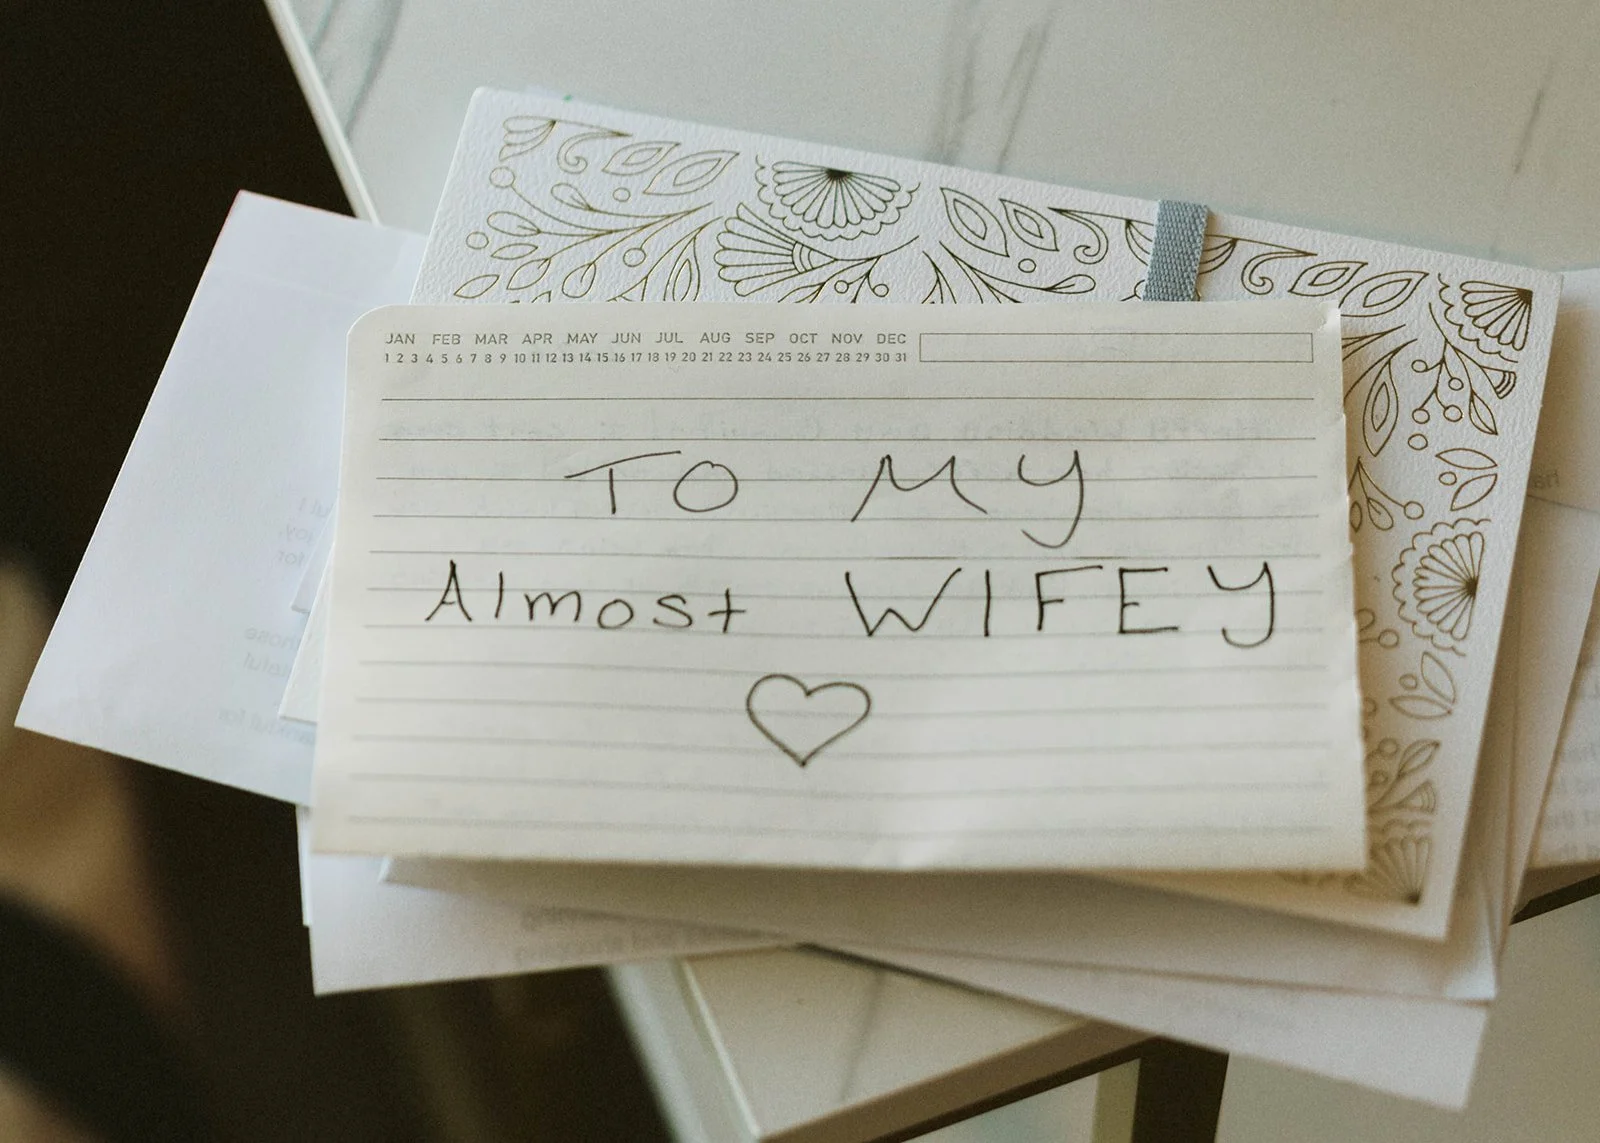 JAN FEB MAR APR MAY JUN JUL AUG SEP OCT NOV DEC
1 2 3 4 5 6 7 8 9 10 11 12 13 14 15 16 17 18 19 20 21 22 23 24 25 26 27 28 29 30 31
TO MY
Almost WIFEY